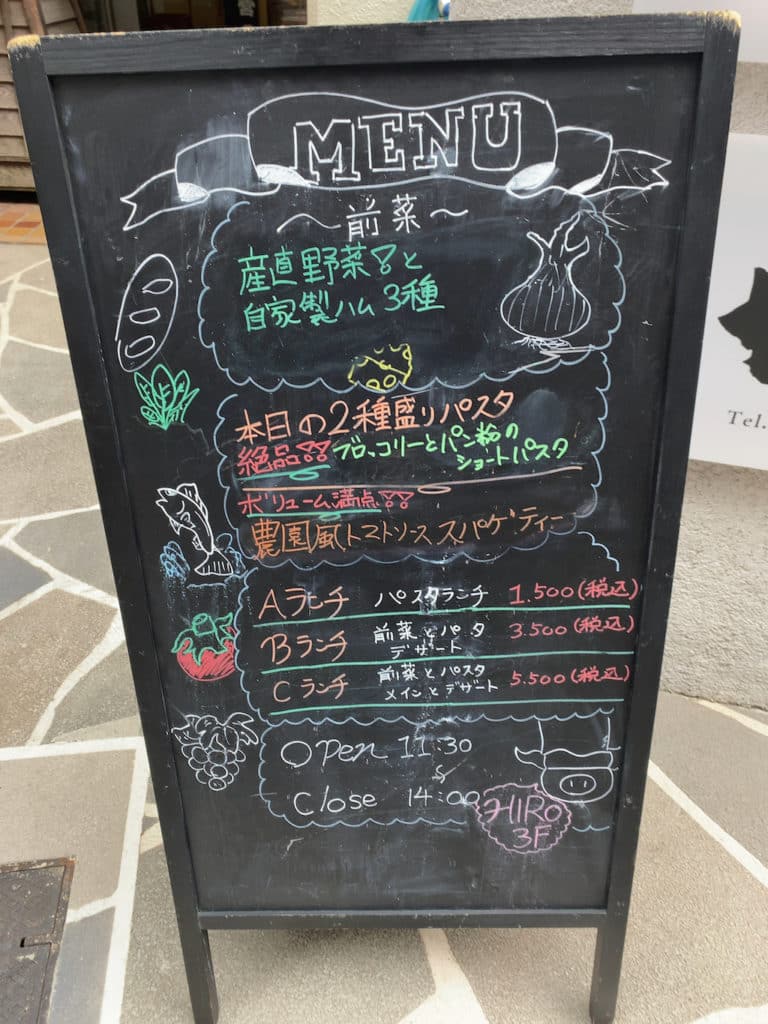 MENU
〜前菜〜
産直野菜!と
自家製ハム3種
本日の2種盛りパスタ
絶品!! ブロッコリーとパン粉の
ショートパスタ
ボリューム満点!!
農園風トマトソーススパゲティー
Aランチ パスタランチ 1.500(税込)
Bランチ 前菜とパタ デザート 3.500(税込)
Cランチ 前菜とパスタ メインとデザート 5.500(税込)
Open 11:30
Close 14:00
HIRO
3F
Tel.